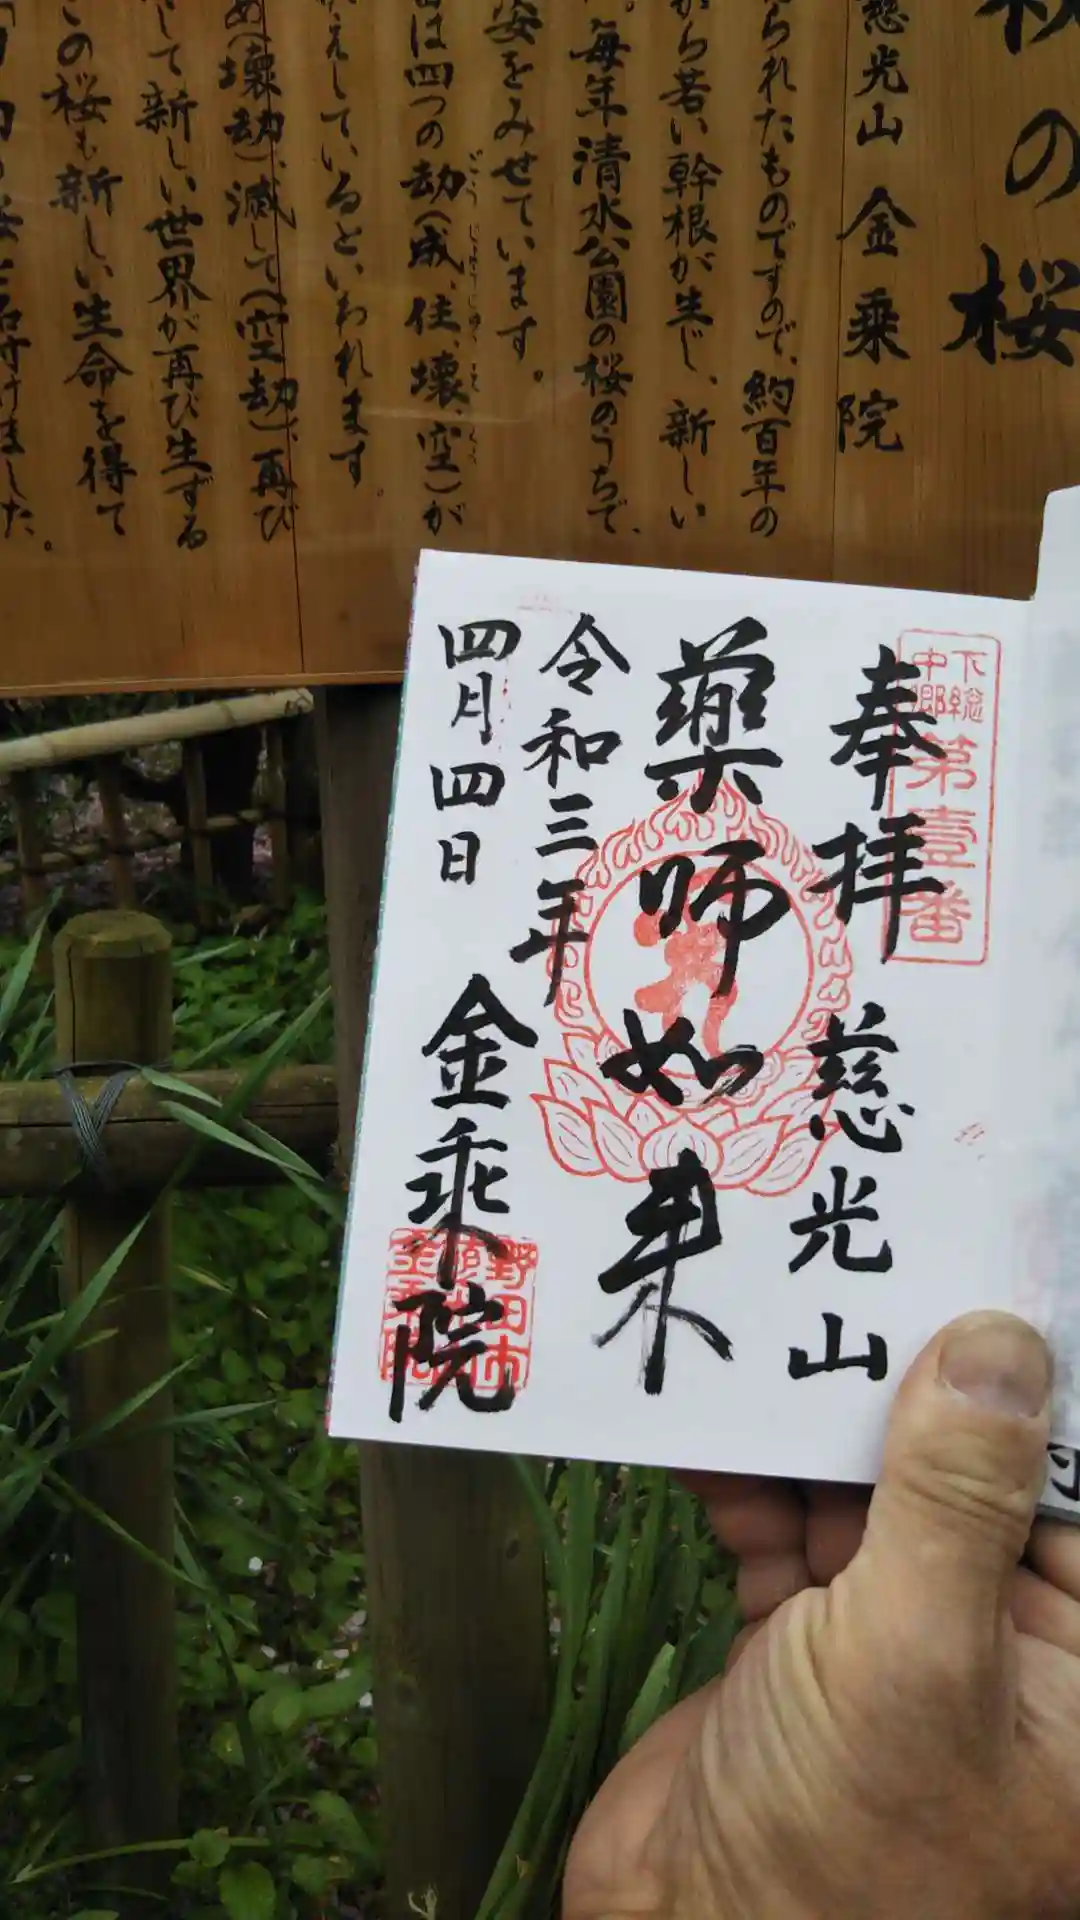 の桜
慈光山 金乗院
られたものですので、約百年の
から若い幹根が生じ、新しい
。毎年清水公園の桜のうちで、
姿をみせています。
は四つの劫(成、住、壊、空)が
ごう じょう じゅう え くう
えしているといわれます。
め(壊劫)、滅して(空劫)、再び
して新しい世界が再び生ずる
この桜も新しい生命を得て
名付けました。
下総
中郷
第壹番
奉拝 慈光山
薬師如来
令和三年
四月四日 金乗院
野田市
金乗院